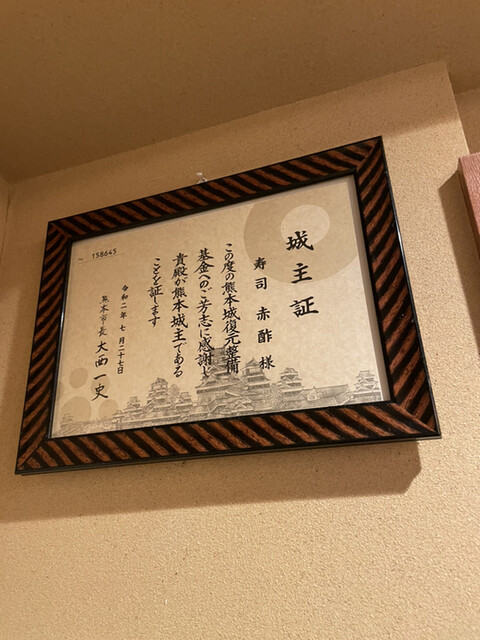 城主証
寿司 赤酢 様
この度の熊本城復元整備
基金へのご芳志に感謝し
貴殿が熊本城主である
ことを証します
令和二年 七月二十七日
熊本市長 大西一史
158645